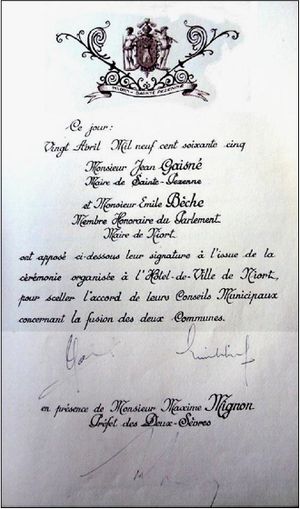 NIORT - SAINTE PEZENNE
Ce jour:
Vingt Avril Mil neuf cent soixante cinq
Monsieur Jean Gaisné
Maire de Sainte-Pezenne
et Monsieur Emile Bêche
Membre Honoraire du Parlement
Maire de Niort
ont apposé ci-dessous leur signature à l'issue de la
cérémonie organisée à l'Hôtel-de-Ville de Niort,
pour sceller l'accord de leurs Conseils Municipaux
concernant la fusion des deux Communes.
en présence de Monsieur Maxime Mignon
Préfet des Deux-Sèvres